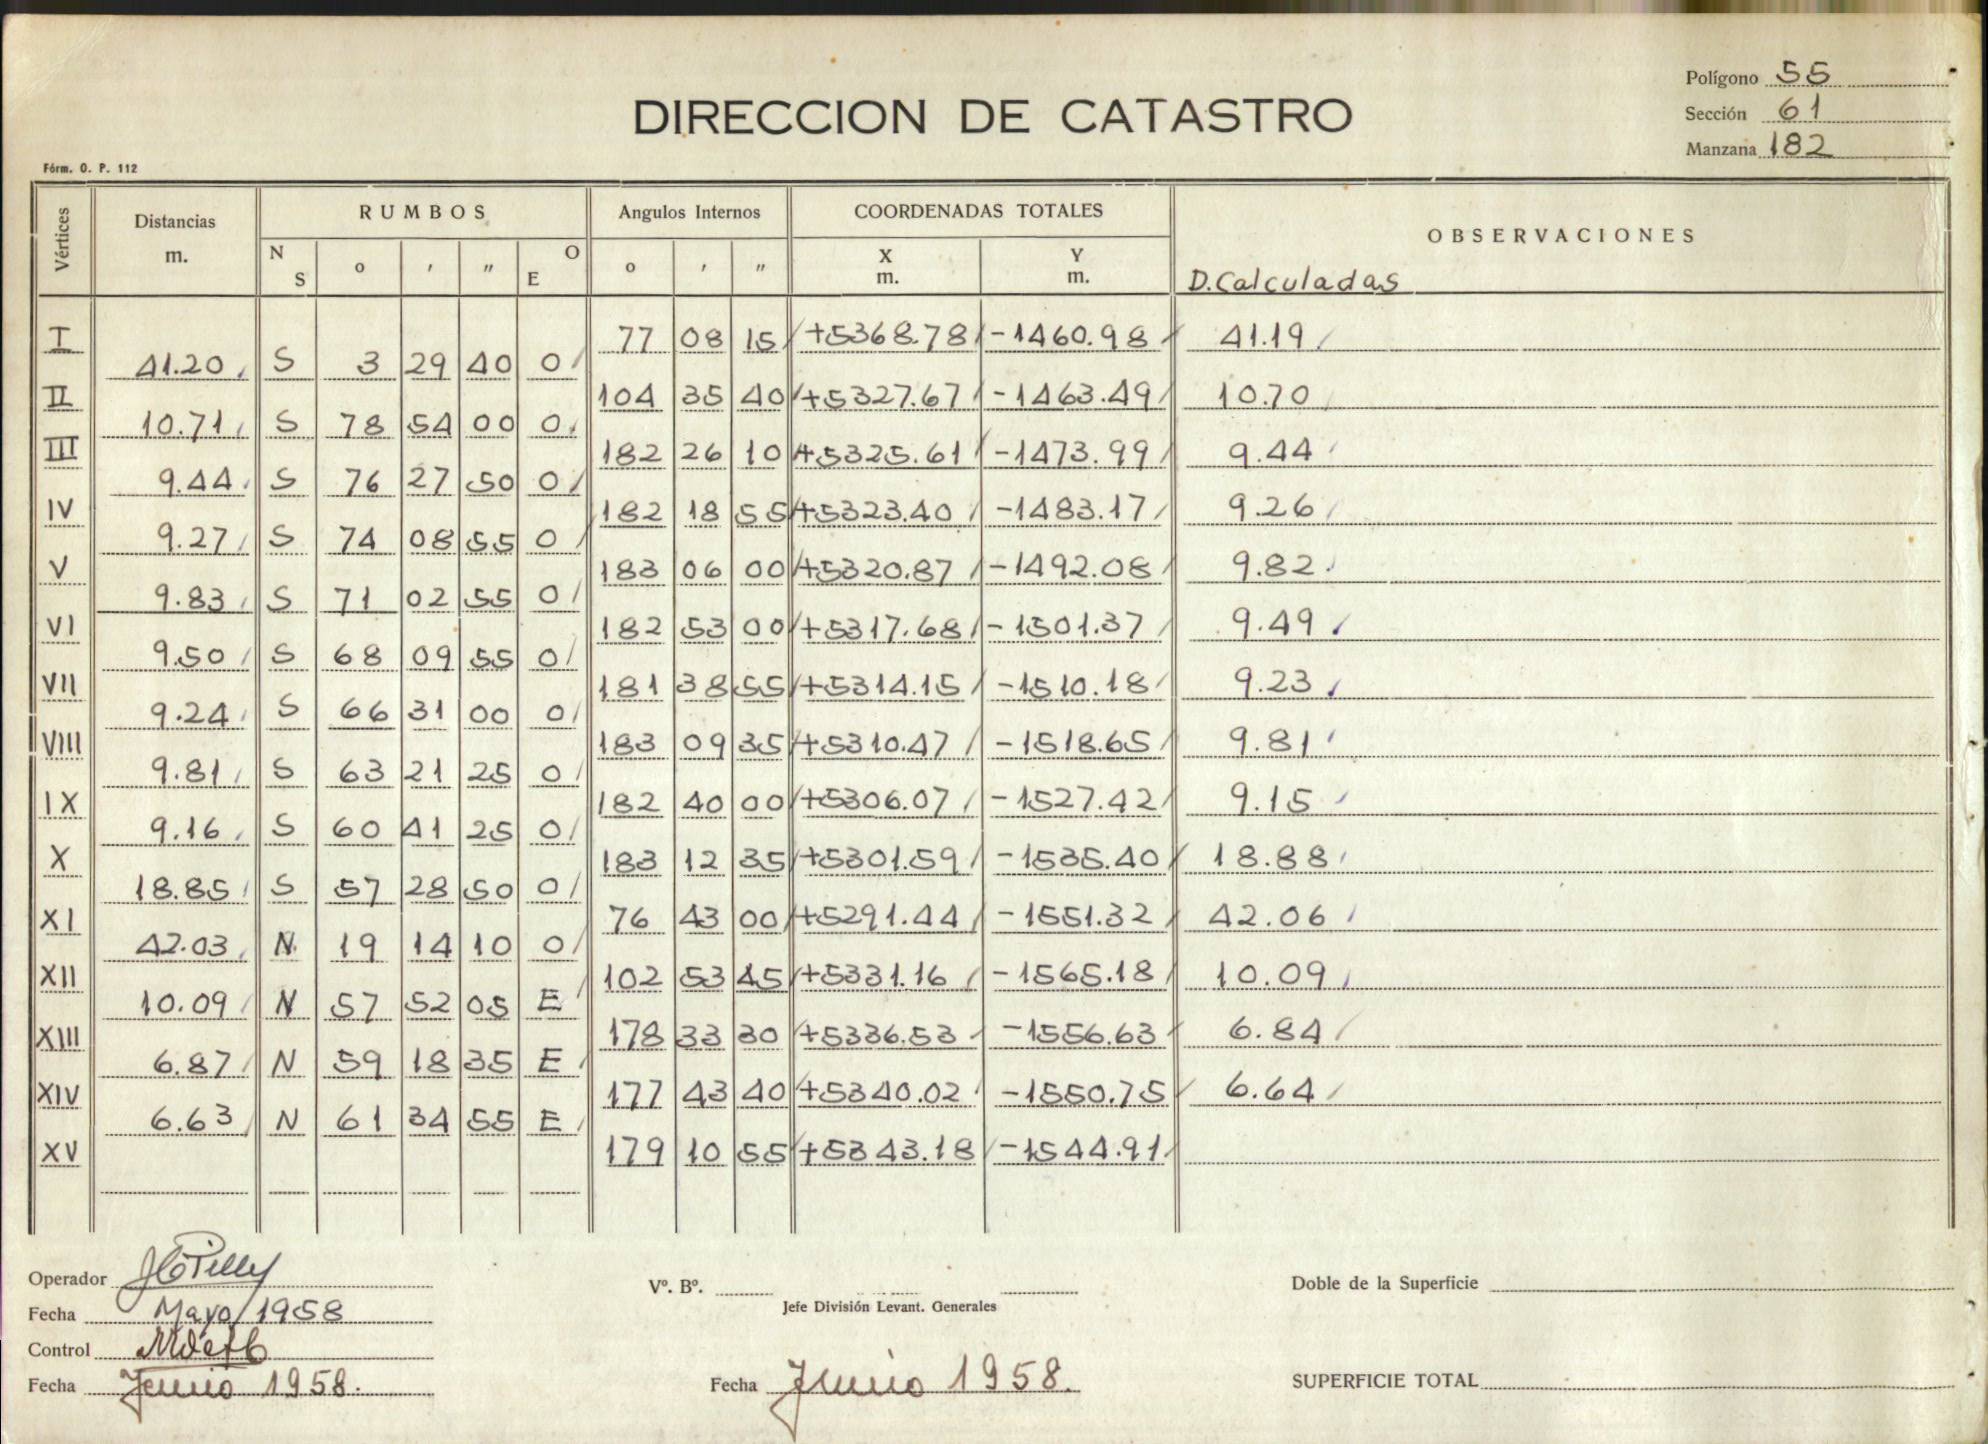 Polígono 55
DIRECCION DE CATASTRO
Sección 61
Manzana 182
Fórm. O. P. 112
Vértices Distancias m. RUMBOS Angulos Internos COORDENADAS TOTALES OBSERVACIONES
N S o ' " O E o ' " X m. Y m. D. Calculadas
I 77 08 15 +5368.78 -1460.98 41.19
41.20 S 3 29 40 O
II 104 35 40 +5327.67 -1463.49 10.70
10.71 S 78 54 00 O
III 182 26 10 +5325.61 -1473.99 9.44
9.44 S 76 27 50 O
IV 182 18 55 +5323.40 -1483.17 9.26
9.27 S 74 08 55 O
V 183 06 00 +5320.87 -1492.08 9.82
9.83 S 71 02 55 O
VI 182 53 00 +5317.68 -1501.37 9.49
9.50 S 68 09 55 O
VII 181 38 55 +5314.15 -1510.18 9.23
9.24 S 66 31 00 O
VIII 183 09 35 +5310.47 -1518.65 9.81
9.81 S 63 21 25 O
IX 182 40 00 +5306.07 -1527.42 9.15
9.16 S 60 41 25 O
X 183 12 35 +5301.59 -1535.40 18.88
18.85 S 57 28 50 O
XI 76 43 00 +5291.44 -1551.32 42.06
42.03 N 19 14 10 O
XII 102 53 45 +5331.16 -1565.18 10.09
10.09 N 57 52 05 E
XIII 178 33 30 +5336.53 -1556.63 6.84
6.87 N 59 18 35 E
XIV 177 43 40 +5340.02 -1550.75 6.64
6.63 N 61 34 55 E
XV 179 10 55 +5343.18 -1544.91
Operador
Fecha Mayo/1958
Control
Fecha Junio 1958.
Vº. Bº.
Jefe División Levant. Generales
Fecha Junio 1958.
Doble de la Superficie
SUPERFICIE TOTAL